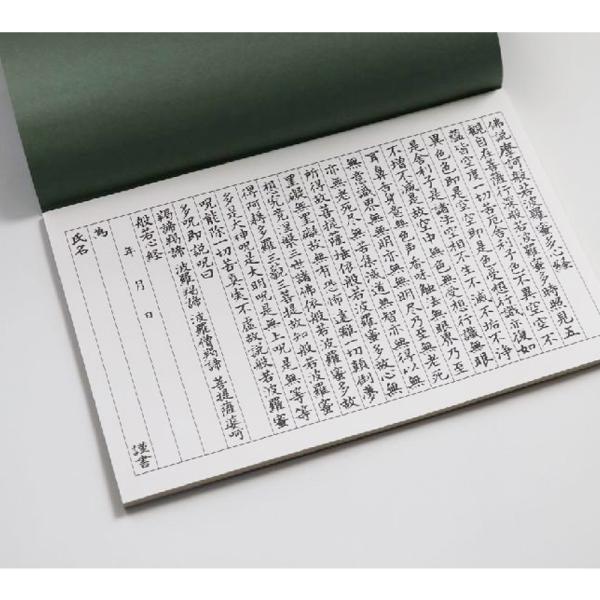 佛説摩訶般若波羅蜜多心經
觀自在菩薩行深般若波羅蜜多時照見五
蘊皆空度一切苦厄舍利子色不異空空不
異色色即是空空即是色受想行識亦復如
是舍利子是諸法空相不生不滅不垢不淨
不增不減是故空中無色無受想行識無眼
耳鼻舌身意無色聲香味觸法無眼界乃至
無意識界無無明亦無無明盡乃至無老死
亦無老死盡無苦集滅道無智亦無得以無
所得故菩提薩埵依般若波羅蜜多故心無
罣礙無罣礙故無有恐怖遠離一切顛倒夢
想究竟涅槃三世諸佛依般若波羅蜜多故
得阿耨多羅三藐三菩提故知般若波羅蜜
多是大神呪是大明呪是無上呪是無等等
呪能除一切苦真實不虛故説般若波羅蜜
多呪即説呪曰
揭諦揭諦 波羅揭諦 波羅僧揭諦 菩提薩婆訶
般若心經
年 月 日
為
氏名
謹書